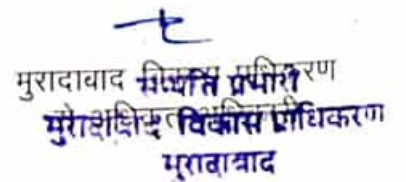 मुरादाबाद विकास प्राधिकरण
सम्पत्ति प्रभारी
मुरादाबाद विकास प्राधिकरण
मुरादाबाद